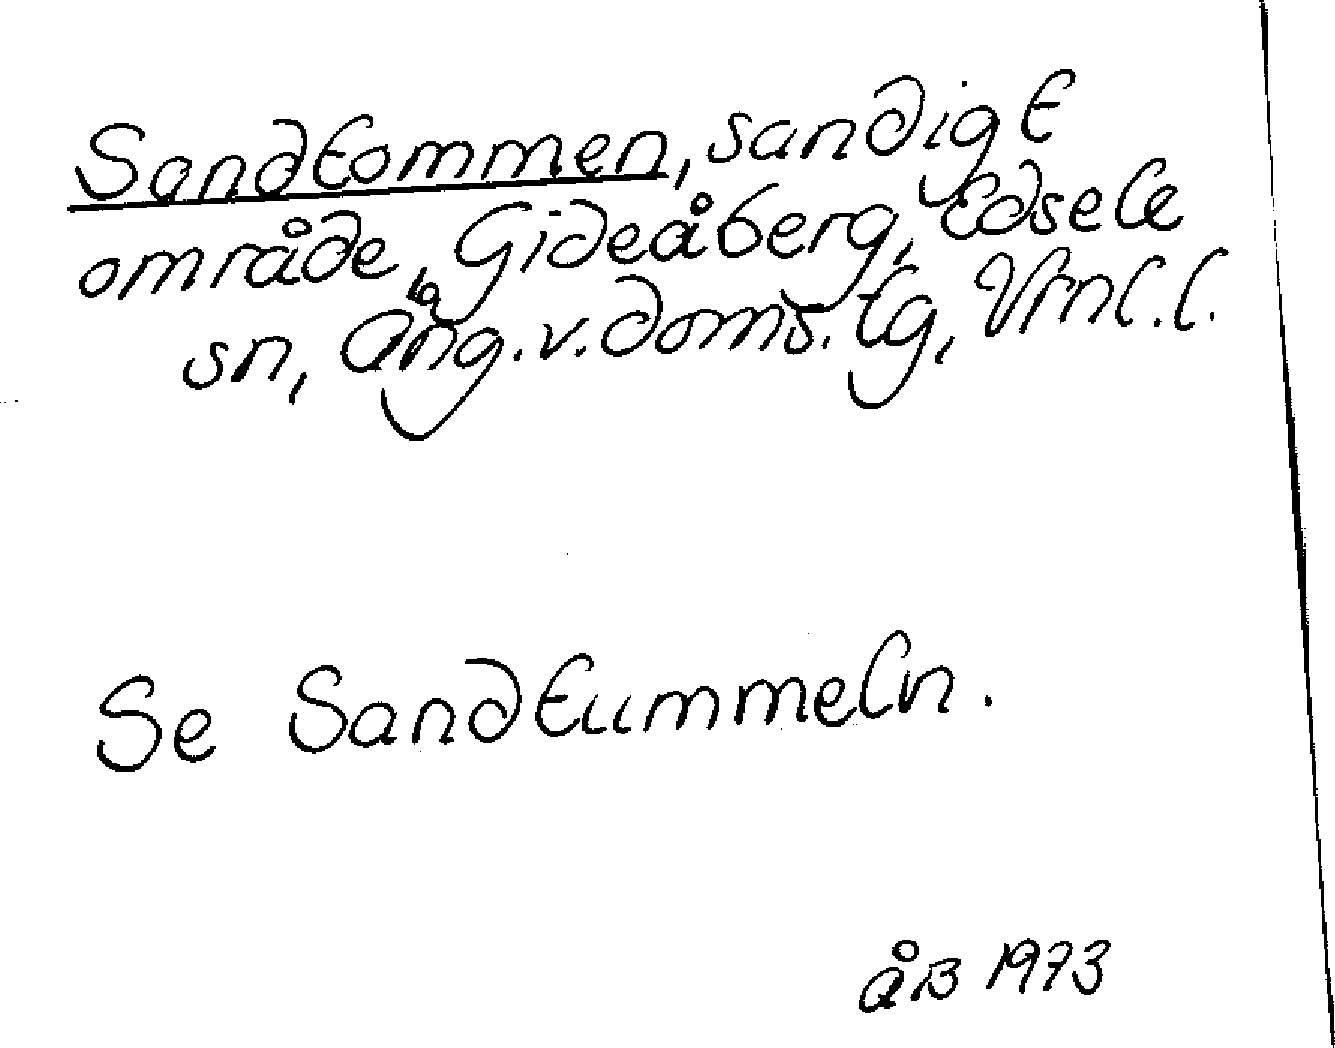 Sandtommen, sandigt
område, Gideåberg, Edsele
sn, Ång. v. doms. tg, Vrnl. l.
Se Sandtummeln.
åB 1973